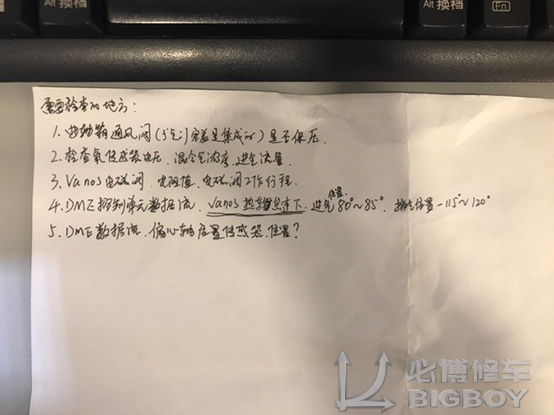 Alt 换档
Alt 换档
Fn
需要检查的地方：
1. 曲轴箱通风阀（与气门室盖是集成的）是否保压.
2. 检查氧传感器电压，混合气浓度，进气流量.
3. Vanos电磁阀，电阻值，电磁阀工作行程.
4. DME控制单元数据流. Vanos 热车怠速下. 进气位置80°~85°. 排气位置-115°~120°
5. DME数据流，偏心轴位置传感器位置？
必博修车
BIGBOY